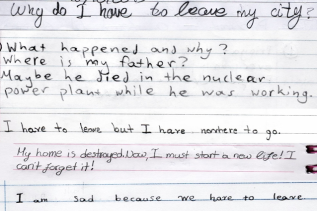 Why do I have to leave my city?
What happened and why?
Where is my father?
Maybe he died in the nuclear
power plant while he was working.
I have to leave but I have nowhere to go.
My home is destroyed. Now, I must start a new life! I
can't forget it!
I am sad because we have to leave